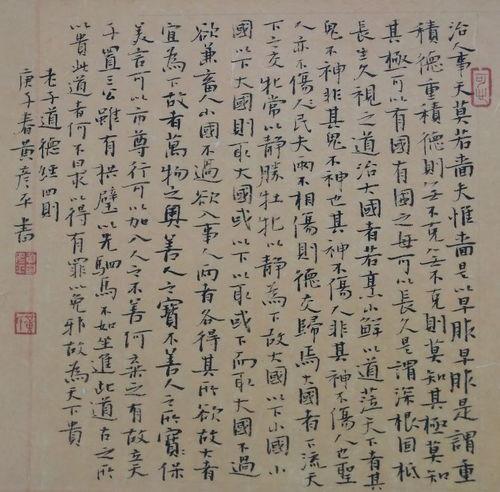 治人事天莫若嗇夫惟嗇是以早服早服是謂重
積德重積德則无不克无不克則莫知其極莫知
其極可以有國有國之母可以長久是謂深根固柢
長生久視之道治大國者若烹小鮮以道蒞天下者其
鬼不神非其鬼不神也其神不傷人非其神不傷人也聖
人亦不傷人民夫兩不相傷則德交歸焉大國者下流天
下之交牝常以靜勝牡牝以靜為下故大國以下小國小
國以下大國則取大國或以下以取或下而取大國不過
欲兼畜人小國不過欲入事人兩者各得其所欲故大者
宜為下故者萬物之奧善人之寶不善人之所寶保
美言可以市尊行可以加人人之不善何棄之有故立天
子置三公雖有拱璧以先駟馬不如坐進此道古之所
以貴此道者何不曰求以得有罪以免邪故為天下貴
老子道德經四則
庚子春黃彦平書